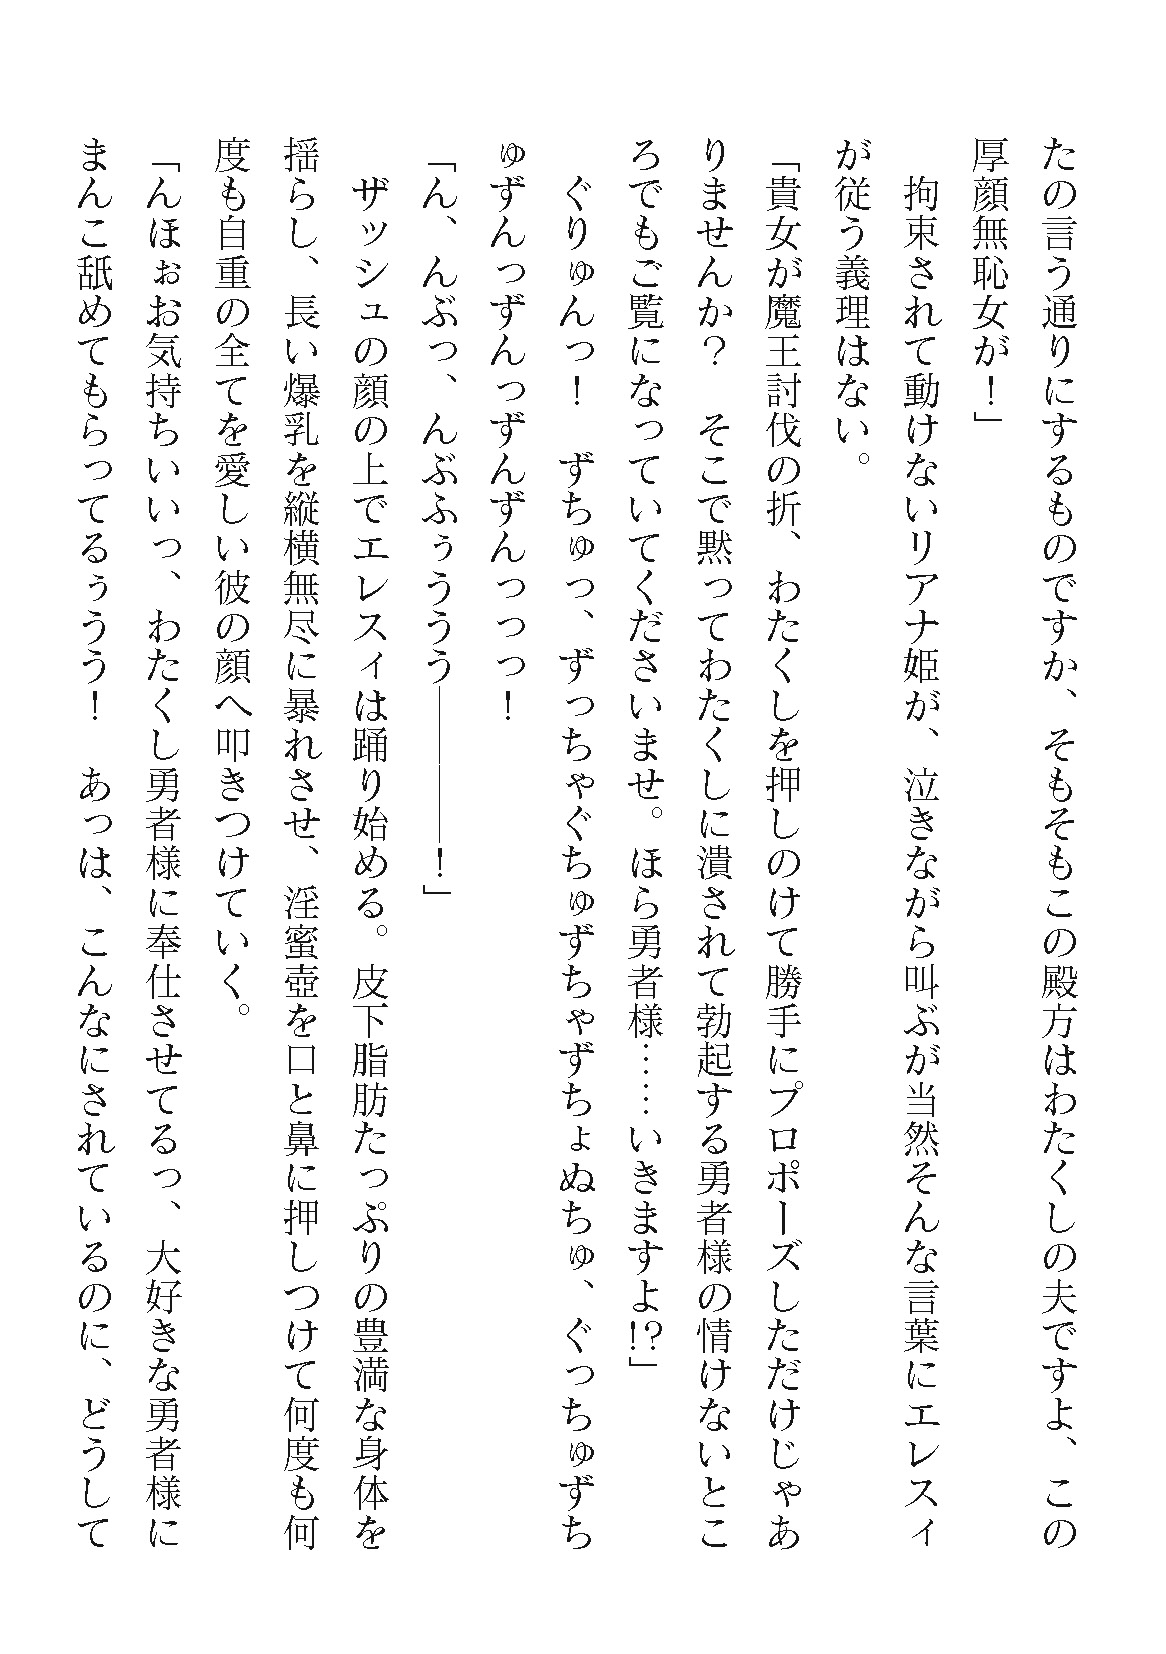 たの言う通りにするものですか、そもそもこの殿方はわたくしの夫ですよ、この
厚顔無恥女が！」
　拘束されて動けないリアナ姫が、泣きながら叫ぶが当然そんな言葉にエレスィ
が従う義理はない。
「貴女が魔王討伐の折、わたくしを押しのけて勝手にプロポーズしただけじゃあ
りませんか？　そこで黙ってわたくしに潰されて勃起する勇者様の情けないとこ
ろでもご覧になっていてくださいませ。ほら勇者様……いきますよ!?」
　ぐりゅんっ！　ずちゅっ、ずっちゃぐちゅずちゃずちょぬちゅ、ぐっちゅずち
ゅずんっずんっずんずんっっっ！
「ん、んぶっ、んぶふぅううう――――！」
　ザッシュの顔の上でエレスィは踊り始める。皮下脂肪たっぷりの豊満な身体を
揺らし、長い爆乳を縦横無尽に暴れさせ、淫蜜壺を口と鼻に押しつけて何度も何
度も自重の全てを愛しい彼の顔へ叩きつけていく。
「んほぉお気持ちいいっ、わたくし勇者様に奉仕させてるっ、大好きな勇者様に
まんこ舐めてもらってるぅうう！　あっは、こんなにされているのに、どうして